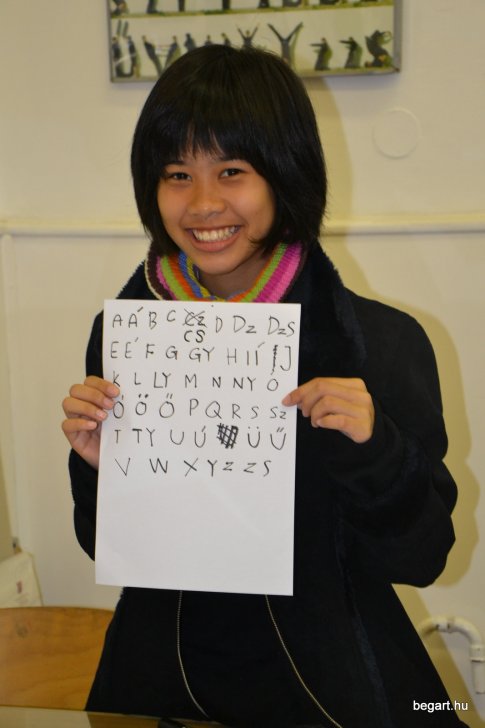 A Á B C D Dz DzS
CS
E É F G GY H I Í J
K L LY M N NY O
Ó Ö Ő P Q R S Sz
T TY U Ú Ü Ű
V W X Y Z ZS
begart.hu